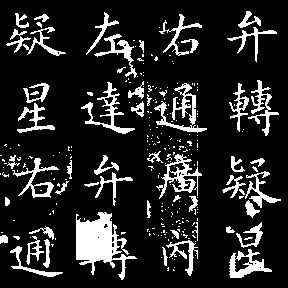 弁轉疑星
右通廣內
左達弁轉
疑星右通